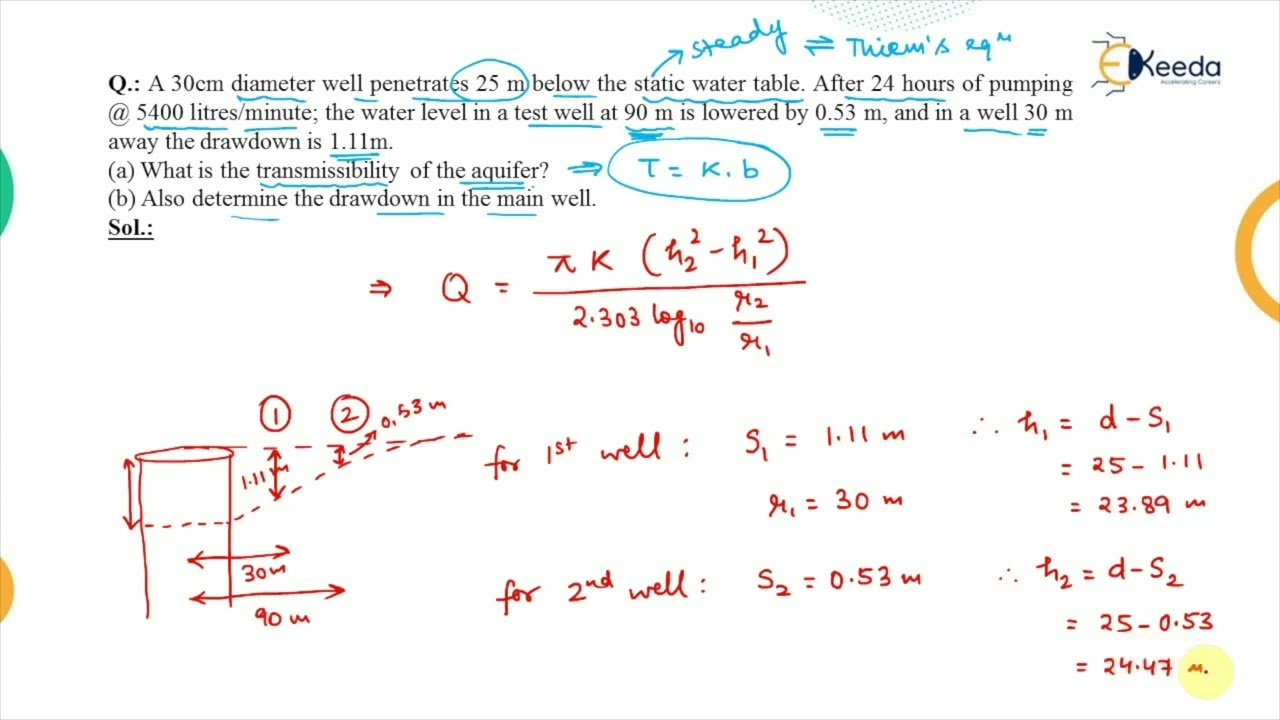 steady ⇌ Thiem's eqⁿ
EKeeda
Accelerating Careers
Q.: A 30cm diameter well penetrates 25 m below the static water table. After 24 hours of pumping
@ 5400 litres/minute; the water level in a test well at 90 m is lowered by 0.53 m, and in a well 30 m
away the drawdown is 1.11m.
(a) What is the transmissibility of the aquifer? ⇒ T = K.b
(b) Also determine the drawdown in the main well.
Sol.:
⇒ Q = π K (h₂² - h₁²) / 2.303 log₁₀ r₂/r₁
① ② 0.53 m
1.11 m
30 m
90 m
for 1st well : S₁ = 1.11 m ∴ h₁ = d - S₁
= 25 - 1.11
r₁ = 30 m = 23.89 m
for 2nd well : S₂ = 0.53 m ∴ h₂ = d - S₂
= 25 - 0.53
= 24.47 m.